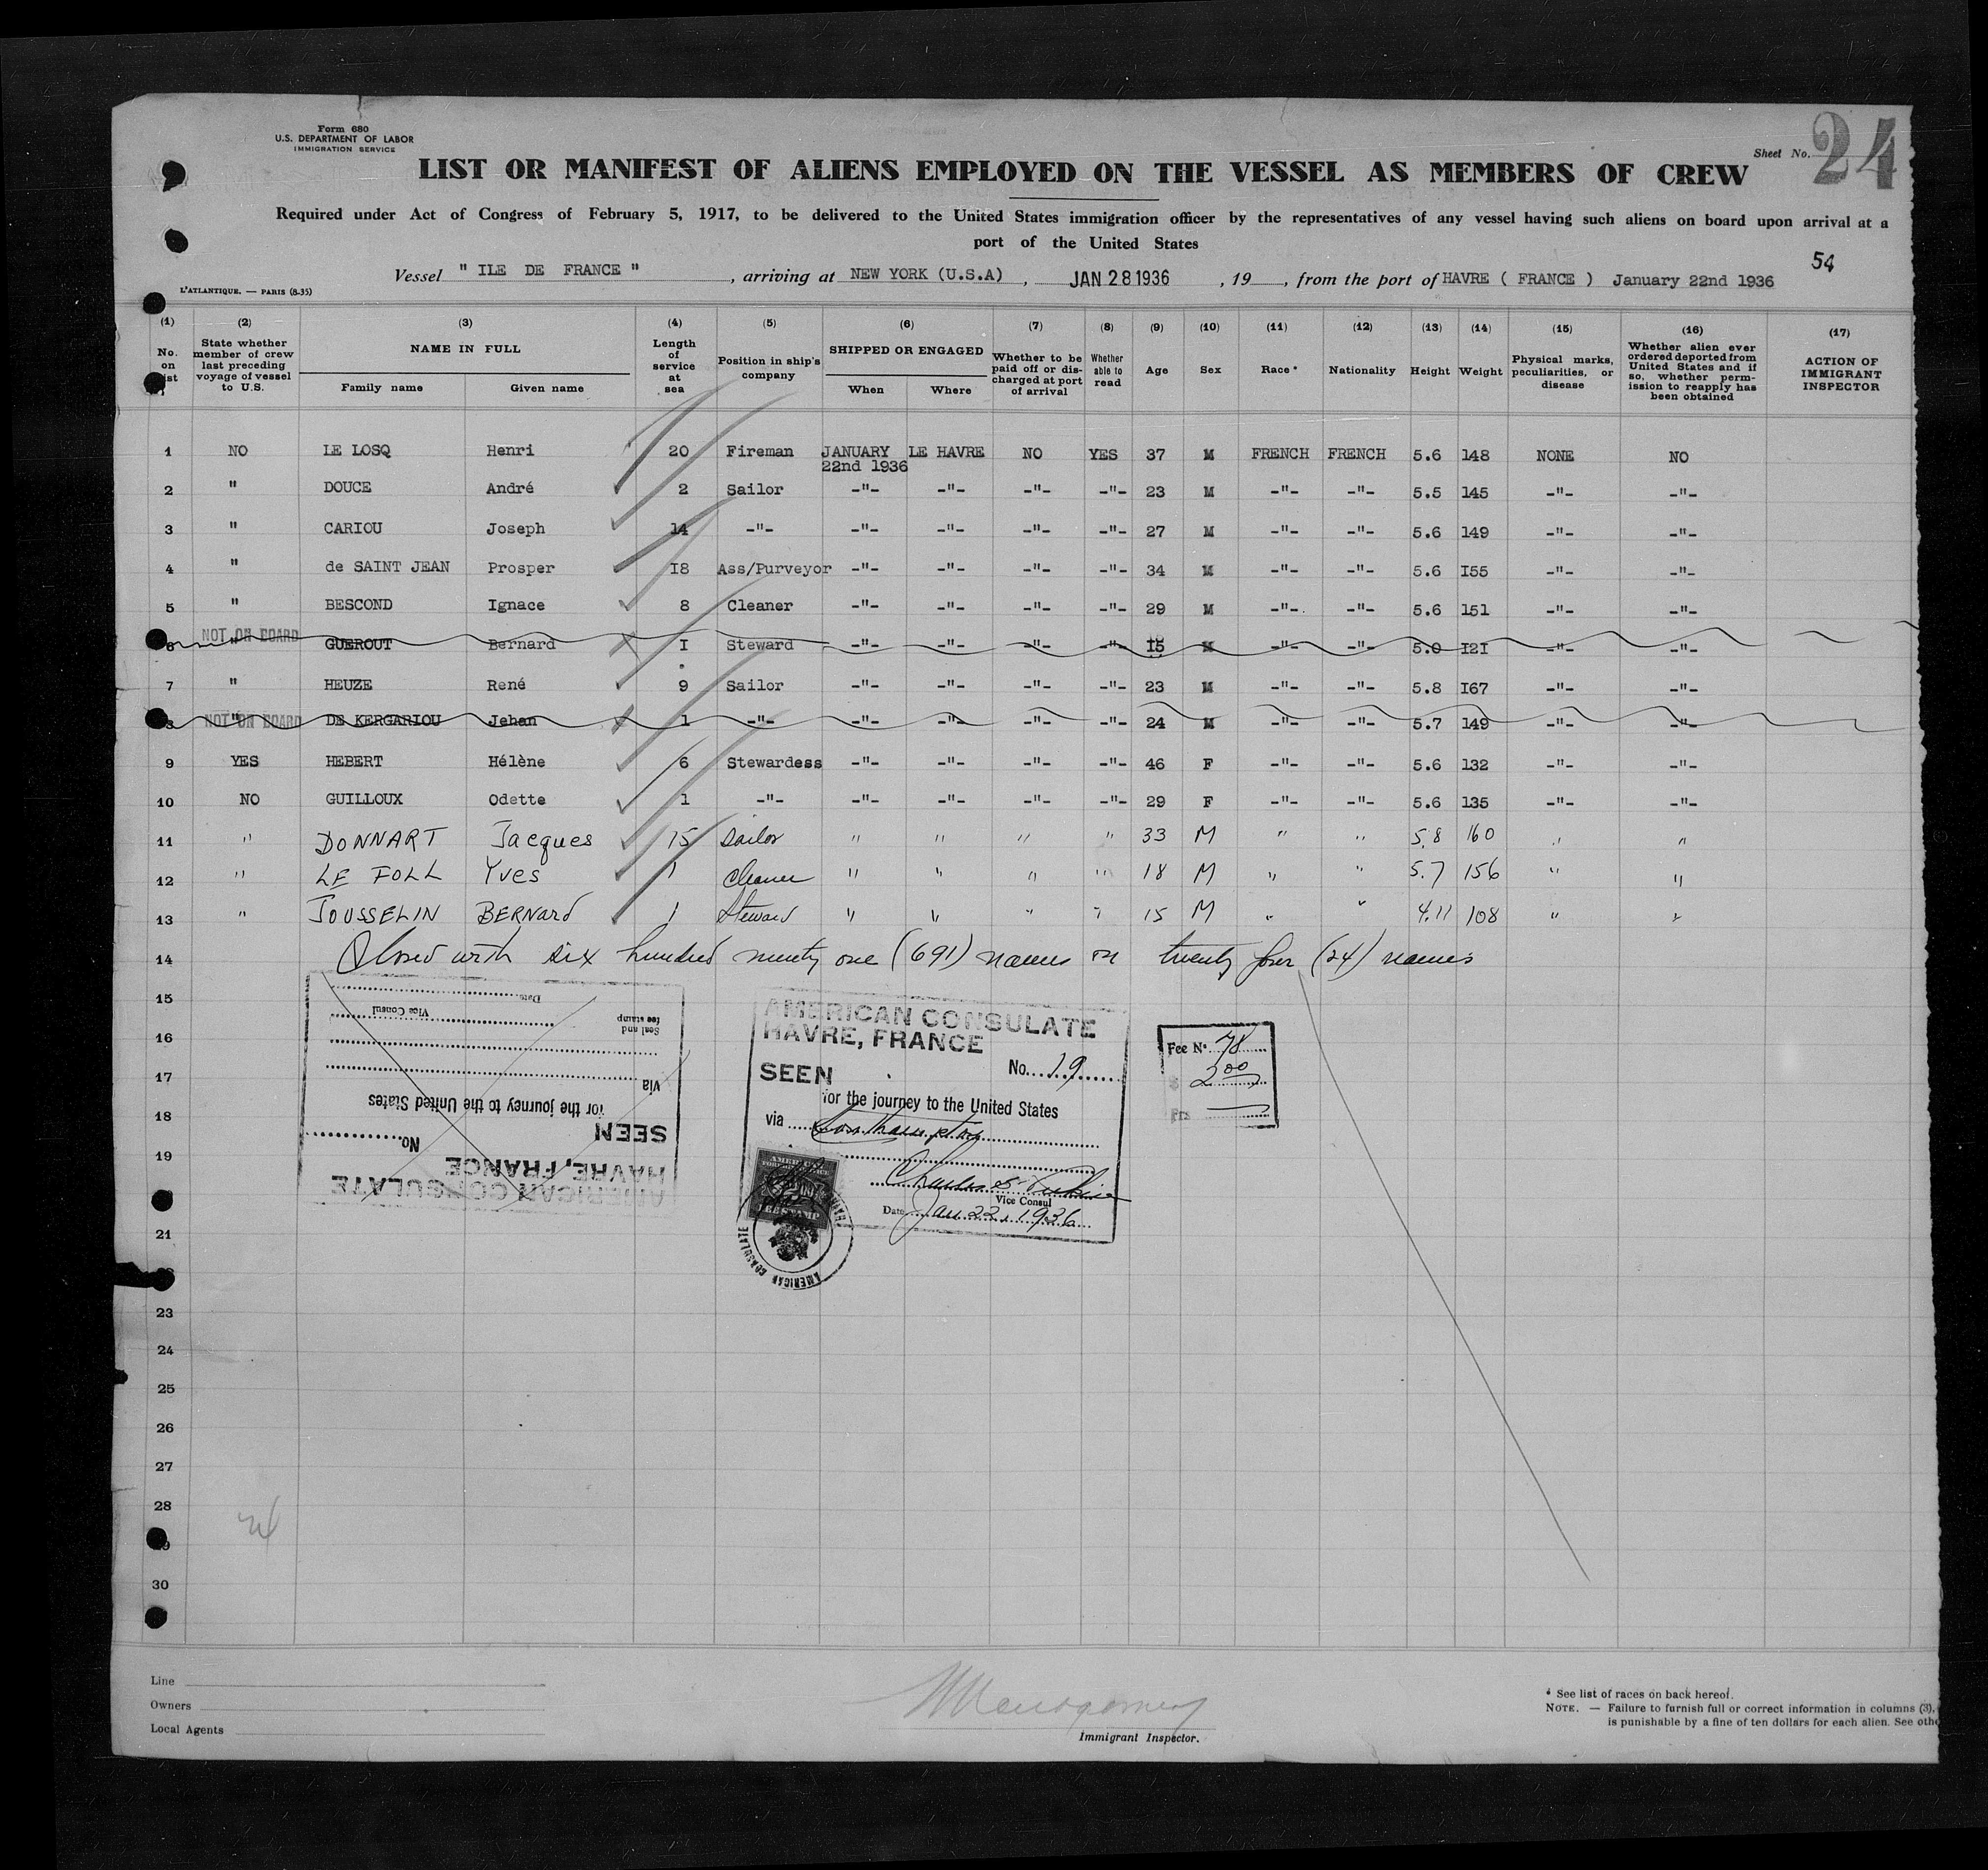 Form 680
U.S. DEPARTMENT OF LABOR
IMMIGRATION SERVICE
Sheet No. 24
LIST OR MANIFEST OF ALIENS EMPLOYED ON THE VESSEL AS MEMBERS OF CREW
Required under Act of Congress of February 5, 1917, to be delivered to the United States immigration officer by the representatives of any vessel having such aliens on board upon arrival at a
port of the United States
54
Vessel " ILE DE FRANCE " , arriving at NEW YORK (U.S.A) , JAN 28 1936 , 19 , from the port of HAVRE ( FRANCE ) January 22nd 1936
L'ATLANTIQUE. — PARIS (8-35)
(1) (2) (3) (4) (5) (6) (7) (8) (9) (10) (11) (12) (13) (14) (15) (16) (17)
No. on list
State whether member of crew last preceding voyage of vessel to U.S.
NAME IN FULL
Family name Given name
Length of service at sea
Position in ship's company
SHIPPED OR ENGAGED
When Where
Whether to be paid off or discharged at port of arrival
Whether able to read
Age Sex Race * Nationality Height Weight
Physical marks, peculiarities, or disease
Whether alien ever ordered deported from United States and if so, whether permission to reapply has been obtained
ACTION OF IMMIGRANT INSPECTOR
1 NO LE LOSQ Henri 20 Fireman JANUARY 22nd 1936 LE HAVRE NO YES 37 M FRENCH FRENCH 5.6 148 NONE NO
2 " DOUCE André 2 Sailor -"- -"- -"- -"- 23 M -"- -"- 5.5 145 -"- -"-
3 " CARIOU Joseph 14 -"- -"- -"- -"- -"- 27 M -"- -"- 5.6 149 -"- -"-
4 " de SAINT JEAN Prosper I8 Ass/Purveyor -"- -"- -"- -"- 34 M -"- -"- 5.6 I55 -"- -"-
5 " BESCOND Ignace 8 Cleaner -"- -"- -"- -"- 29 M -"- -"- 5.6 151 -"- -"-
6 NOT ON BOARD " GUEROUT Bernard I Steward -"- -"- -"- -"- I5 M -"- -"- 5.0 I2I -"- -"-
7 " HEUZE René 9 Sailor -"- -"- -"- -"- 23 M -"- -"- 5.8 I67 -"- -"-
8 NOT ON BOARD " DE KERGARIOU Jehan 1 -"- -"- -"- -"- -"- 24 M -"- -"- 5.7 149 -"- -"-
9 YES HEBERT Hélène 6 Stewardess -"- -"- -"- -"- 46 F -"- -"- 5.6 132 -"- -"-
10 NO GUILLOUX Odette 1 -"- -"- -"- -"- -"- 29 F -"- -"- 5.6 135 -"- -"-
11 " DONNART Jacques 15 Sailor " " " " 33 M " " 5.8 160 " "
12 " LE FOLL Yves 1 Cleaner " " " " 18 M " " 5.7 156 " "
13 " JOUSSELIN BERNard 1 Steward " " " " 15 M " " 4.11 108 " "
14 Closed with six hundred ninety one (691) names on twenty four (24) names
15
16
17
18
19
21
23
24
25
26
27
28
29
30
AMERICAN CONSULATE
HAVRE, FRANCE
SEEN
No.
for the journey to the United States
via
Seal and fee stamp
Vice Consul
Date
AMERICAN CONSULATE
HAVRE, FRANCE
SEEN No. 19
for the journey to the United States
via Southampton
Vice Consul
Date Jan 22, 1936
AMERICAN CONSULATE
FEE STAMP
Fee No 78
$ 2 00
Frs
24
Line
Owners
Local Agents
Montgomery
Immigrant Inspector.
* See list of races on back hereof.
NOTE. — Failure to furnish full or correct information in columns (3),
is punishable by a fine of ten dollars for each alien. See othe